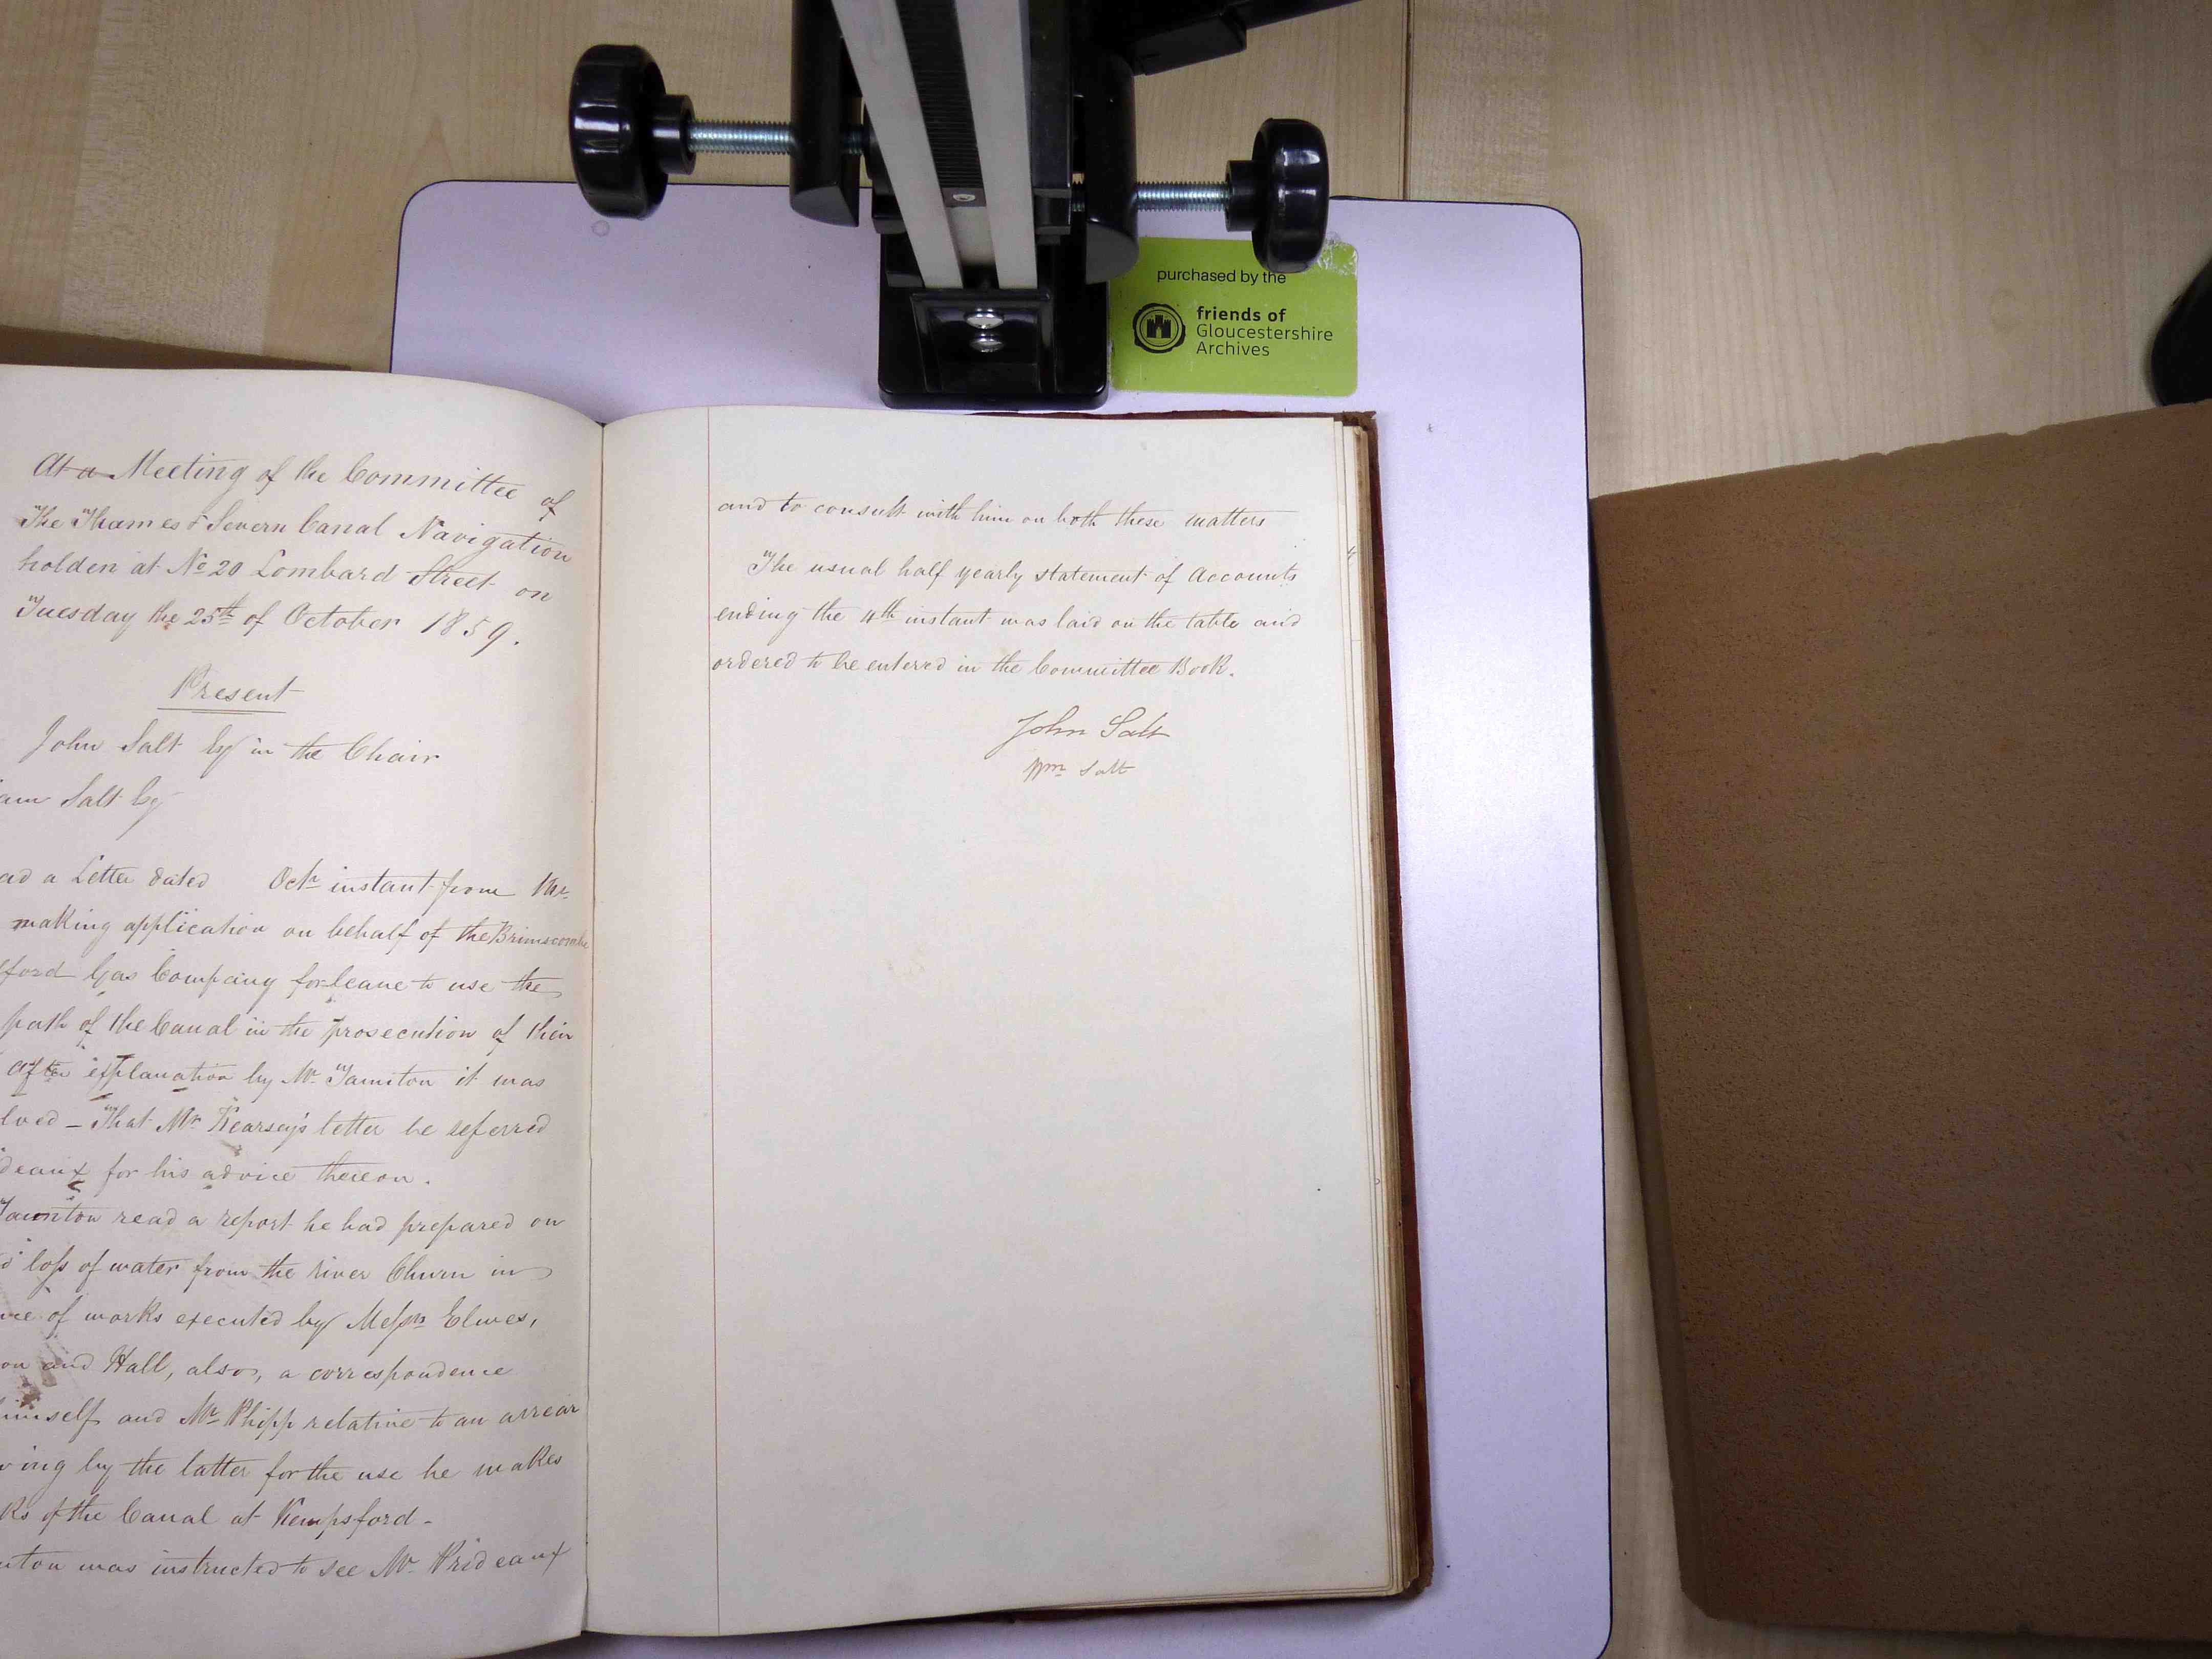 At a Meeting of the Committee of
The Thames & Severn Canal Navigation
holden at No 20 Lombard Street on
Tuesday the 25th of October 1859.
Present
John Salt Esq in the Chair
am Salt Esq
ad a Letter dated Octr instant from Mr
making application on behalf of the Brimscombe
fford Gas Company for leave to use the
path of the Canal in the prosecution of their
after explanation by Mr Taunton it was
lved – That Mr Kearsey's letter be referred
deaux for his advice thereon.
Taunton read a report he had prepared on
d loss of water from the river Churn in
nce of works executed by Messrs Elwes,
on and Hall, also, a correspondence
himself and Mr Phipp relative to an arrear
wing by the latter for the use he makes
ks of the Canal at Kempsford –
nton was instructed to see Mr Prideaux
purchased by the
friends of
Gloucestershire
Archives
and to consult with him on both these matters
The usual half yearly statement of Accounts
ending the 4th instant was laid on the table and
ordered to be entered in the Committee Book.
John Salt
Wm Salt